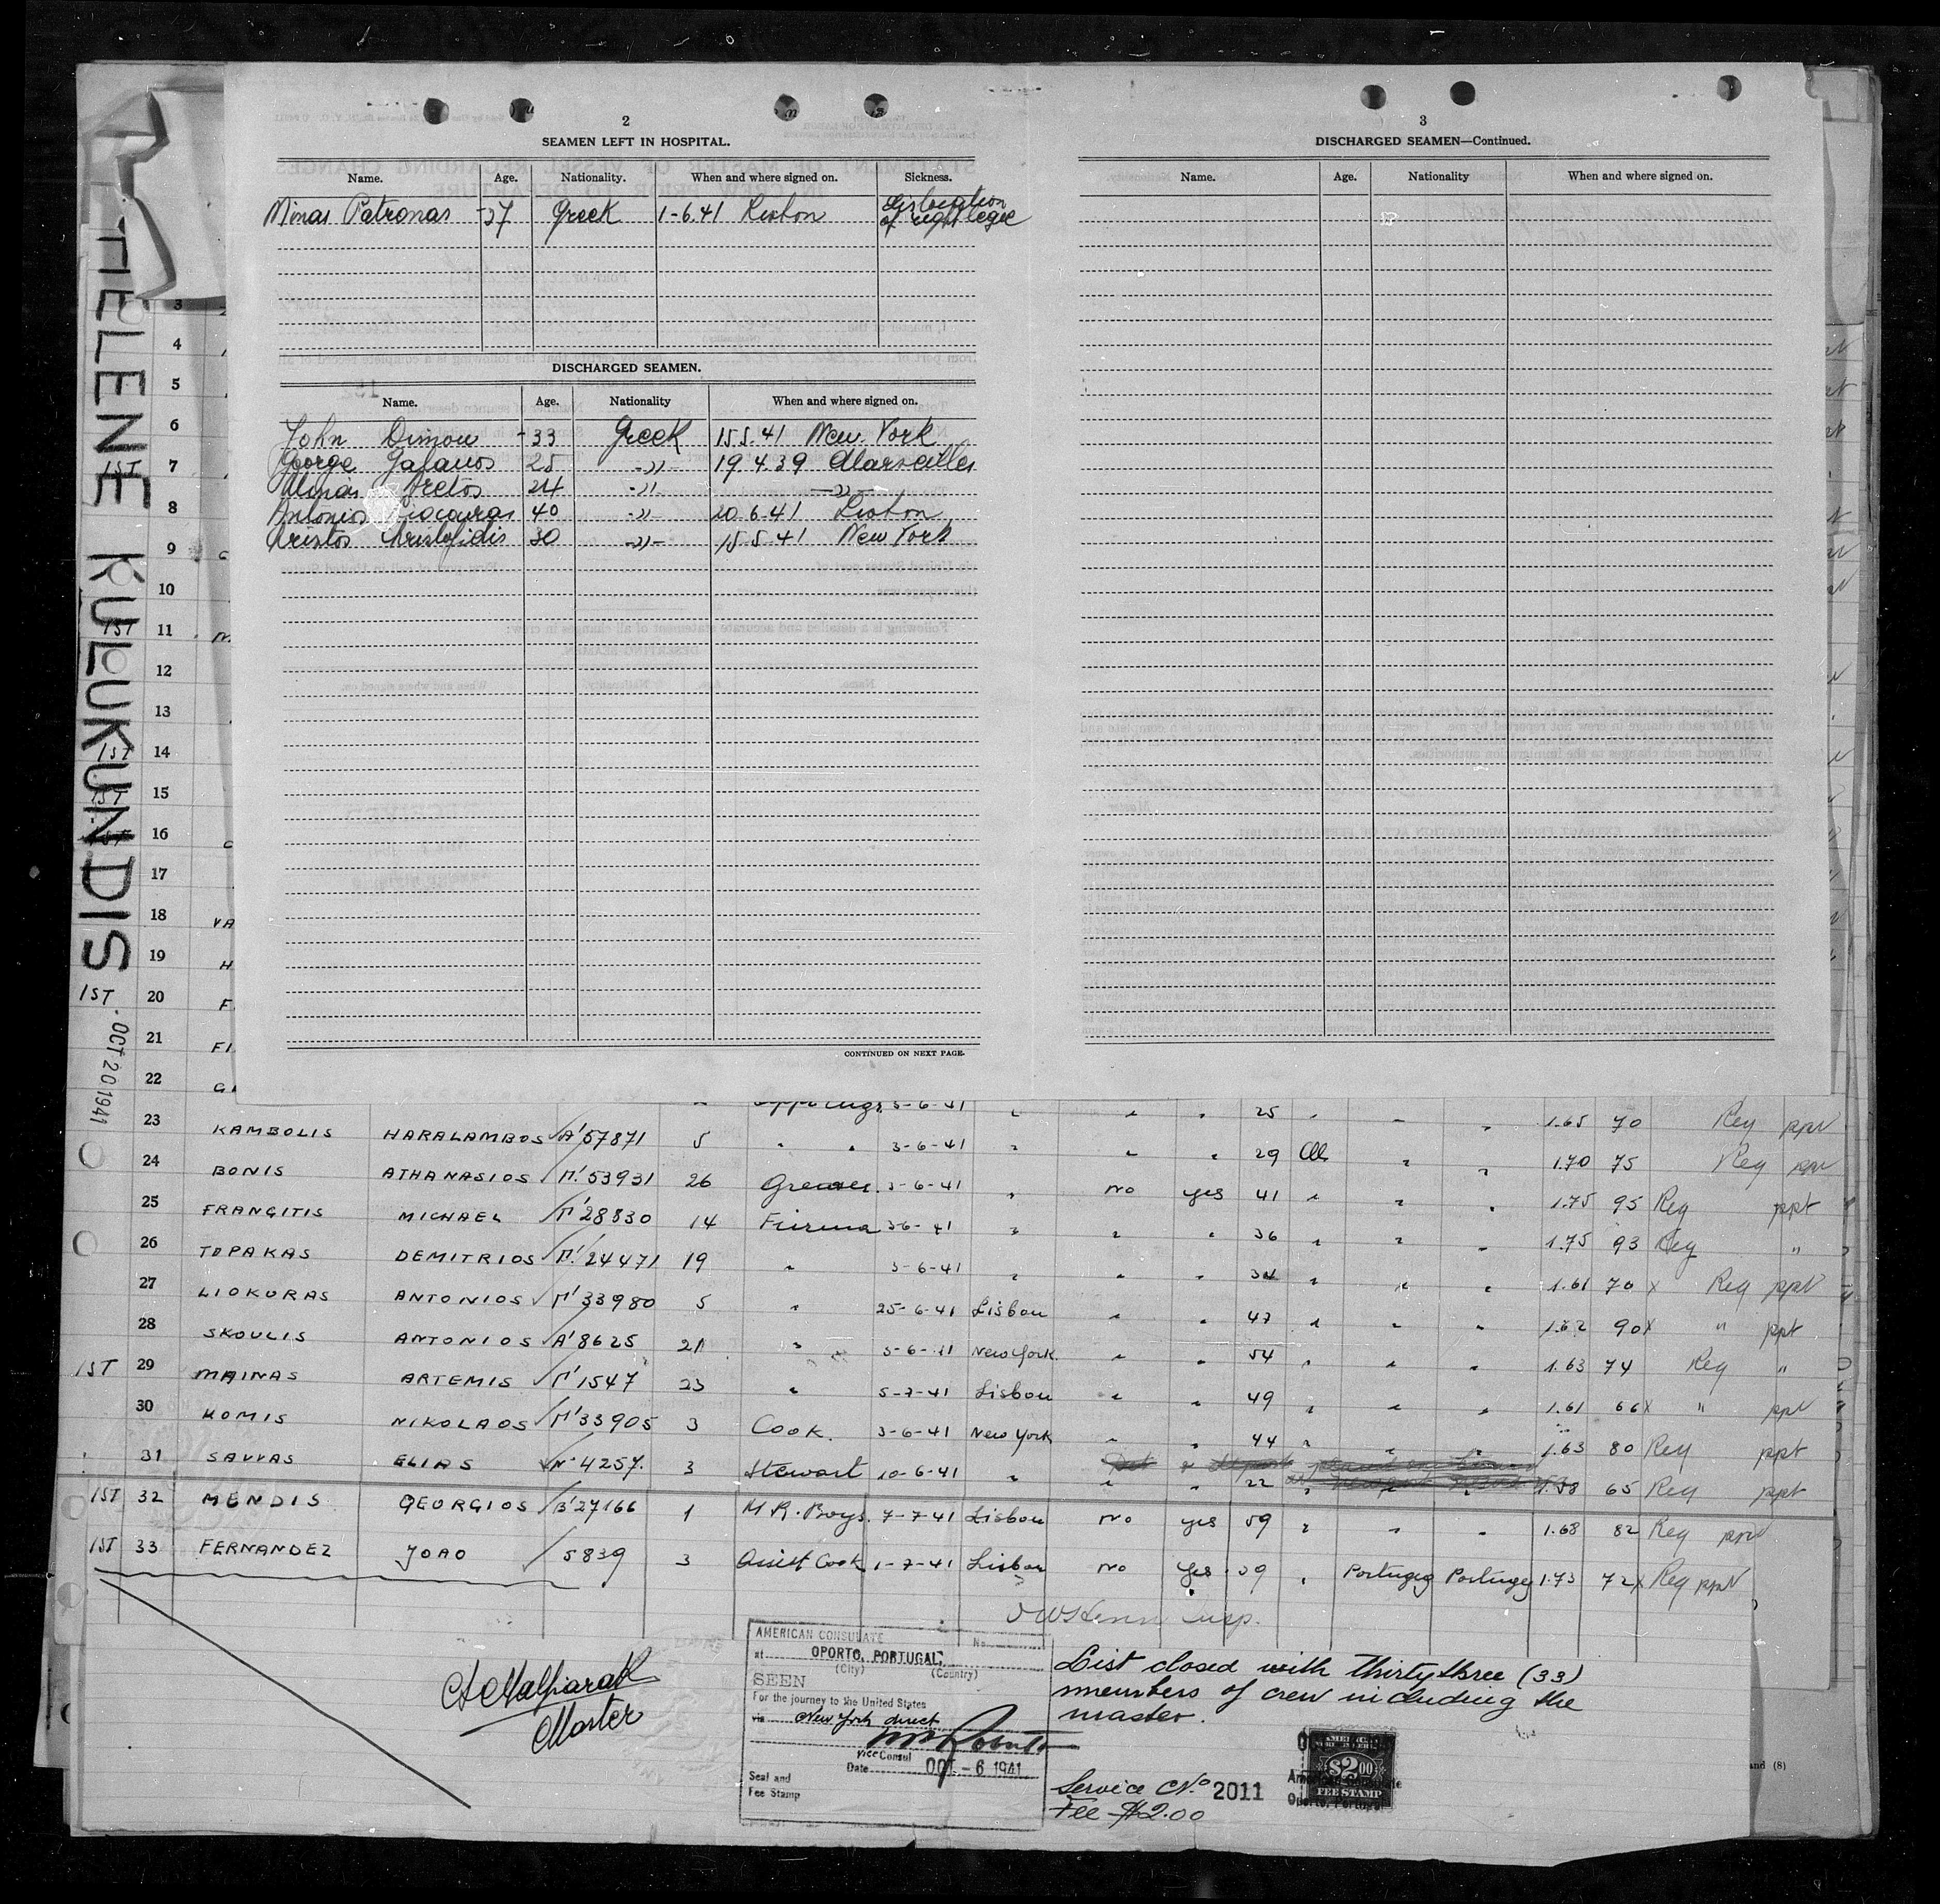 2
SEAMEN LEFT IN HOSPITAL.
Name. Age. Nationality. When and where signed on. Sickness.
Minas Patronas 37 Greek 1-6.41 Lisbon of right legee
DISCHARGED SEAMEN.
Name. Age. Nationality When and where signed on.
John Dimou 33 Greek 15.5.41 New York
George Gafanos 25 -"- 19.4.39 Marseilles
Minas Aretos 24 -"- -"-
Antonios 40 -"- 20.6.41 Lisbon
Aristos Aristofidis 30 -"- 15.5.41 New York
CONTINUED ON NEXT PAGE.
3
DISCHARGED SEAMEN—Continued.
Name. Age. Nationality When and where signed on.
HELENE KULUKUNDIS
OCT 20 1941
3
4
5
6
1ST 7
8
9
10
1ST 11
12
13
1ST 14
1ST 15
1ST 16
17
18 VA
19 H
20 F
1ST
21 FI
22 GI
3-6-41 " " " 25 " " " 1.65 70 Reg ppt
23 KAMBOLIS HARALAMBOS A'57871 5 " " 3-6-41 " " " 29 " " 1.70 75 Reg ppt
24 BONIS ATHANASIOS Γ'.53931 26 Greaser. 3-6-41 " no yes 41 " " " 1.75 95 Reg ppt
25 FRANGITIS MICHAEL Γ'28830 14 Fireman 3-6-41 " " " 36 " " " 1.75 93 Reg "
26 TOPAKAS DEMITRIOS Γ'.24471 19 " 3-6-41 " " " 34 " " " 1.61 70 x Reg ppt
27 LIOKURAS ANTONIOS Γ'33980 5 " 25-6-41 Lisbon " " 47 " " " 1.62 90 x " ppt
28 SKOULIS ANTONIOS A'8625 21 " 3-6-41 New York. " " 54 " " " 1.63 74 Reg "
1ST 29 MAINAS ARTEMIS Γ'1547 23 " 5-7-41 Lisbon " " 49 " " " 1.61 66 x " ppt
30 KOMIS NIKOLAOS Γ'33905 3 Cook. 3-6-41 New York " " 44 " " " 1.63 80 Reg ppt
31 SAVVAS ELIAS N° 4257. 3 Stewart 10-6-41 " " " 22 " " 1.58 65 Reg ppt
1ST 32 MENDIS GEORGIOS B'27166 1 M.R.Boys. 7-7-41 Lisbon no yes 59 " " " 1.68 82 Reg ppt
1ST 33 FERNANDEZ JOAO 5839 3 Assist Cook 1-7-41 Lisbon no yes 39 " Portugeg Portugeg 1.73 72 x Reg ppt
Insp.
Master
AMERICAN CONSULATE No.
at OPORTO, PORTUGAL.
(City) (Country)
SEEN
For the journey to the United States
via New York direct
Vice Consul
Date OCT - 6 1941
Seal and
Fee Stamp
List closed with thirtythree (33)
members of crew including the
master.
Service No. 2011
Fee $2.00
$2.00
FEE STAMP
Oporto, Portugal
and (8)